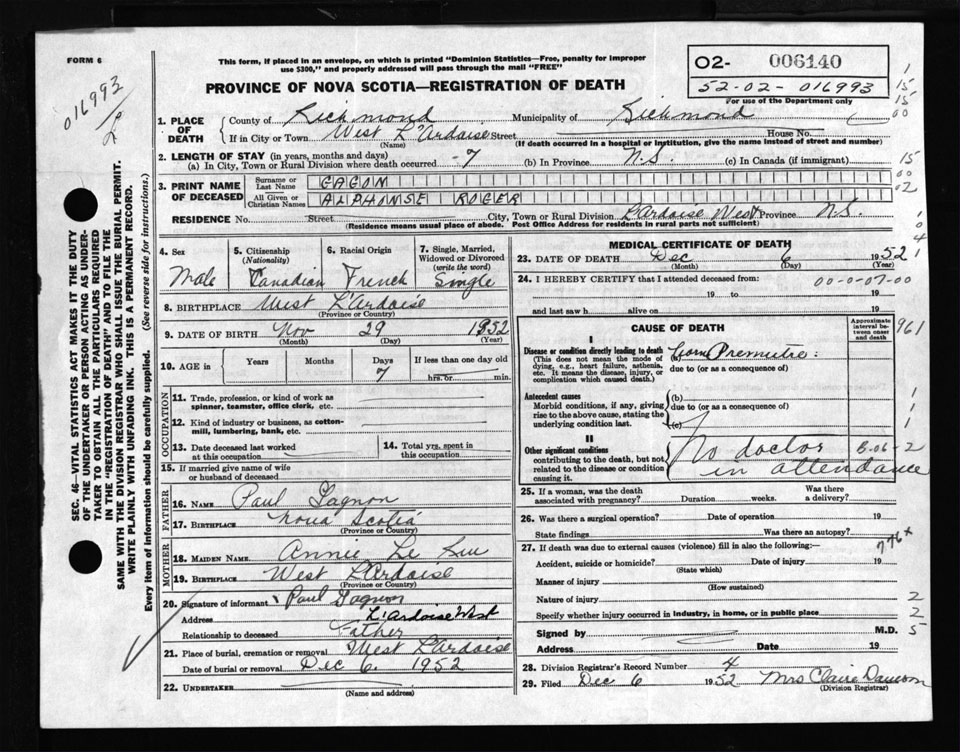 FORM 6
This form, if placed in an envelope, on which is printed "Dominion Statistics—Free, penalty for improper
use $300," and properly addressed will pass through the mail "FREE"
O2- 006140
52-02-016993
For use of the Department only
016993
PROVINCE OF NOVA SCOTIA—REGISTRATION OF DEATH
1. PLACE OF DEATH County of Richmond Municipality of Richmond
If in City or Town West L'Ardoise Street House No.
(Name) (If death occurred in a hospital or institution, give the name instead of street and number)
2. LENGTH OF STAY (in years, months and days)
(a) In City, Town or Rural Division where death occurred -7 (b) In Province N.S. (c) In Canada (if immigrant)
3. PRINT NAME OF DECEASED
Surname or Last Name GAGON
All Given or Christian Names ALPHONSE ROGER
RESIDENCE No. Street City, Town or Rural Division Lardoise West Province N.S.
(Residence means usual place of abode. Post Office Address for residents in rural parts not sufficient)
4. Sex Male
5. Citizenship (Nationality) Canadian
6. Racial Origin French
7. Single, Married, Widowed or Divorced (write the word) Single
8. BIRTHPLACE West L'Ardoise
(Province or Country)
9. DATE OF BIRTH Nov 29 1952
(Month) (Day) (Year)
10. AGE in Years Months Days 7 If less than one day old hrs. or min.
OCCUPATION
11. Trade, profession, or kind of work as spinner, teamster, office clerk, etc.
12. Kind of industry or business, as cotton-mill, lumbering, bank, etc.
13. Date deceased last worked at this occupation
14. Total yrs. spent in this occupation
15. If married give name of wife or husband of deceased
FATHER
16. NAME Paul Gagnon
17. BIRTHPLACE Nova Scotia
(Province or Country)
MOTHER
18. MAIDEN NAME Annie Le
19. BIRTHPLACE West L'Ardoise
(Province or Country)
20. Signature of informant Paul Gagnon
Address L'Ardoise West
Relationship to deceased Father
21. Place of burial, cremation or removal West L'Ardoise
Date of burial or removal Dec 6 1952
22. UNDERTAKER
(Name and address)
MEDICAL CERTIFICATE OF DEATH
23. DATE OF DEATH Dec 6 1952
(Month) (Day) (Year)
24. I HEREBY CERTIFY that I attended deceased from: 00-0-07-00
19 to 19
and last saw h alive on 19
CAUSE OF DEATH
Approximate interval between onset and death
961
I
Disease or condition directly leading to death
(This does not mean the mode of dying, e.g., heart failure, asthenia, etc. It means the disease, injury, or complication which caused death.)
(a)
due to (or as a consequence of)
Antecedent causes
Morbid conditions, if any, giving rise to the above cause, stating the underlying condition last.
(b)
due to (or as a consequence of)
(c)
II
Other significant conditions
contributing to the death, but not related to the disease or condition causing it.
No doctor
in attendance
B-06-2
25. If a woman, was the death associated with pregnancy? Duration weeks. Was there a delivery?
26. Was there a surgical operation? Date of operation 19
State findings Was there an autopsy?
27. If death was due to external causes (violence) fill in also the following:—
776+
Accident, suicide or homicide? Date of injury 19
(State which)
Manner of injury
(How sustained)
Nature of injury
Specify whether injury occurred in industry, in home, or in public place
Signed by M.D.
Address Date 19
28. Division Registrar's Record Number 4
29. Filed Dec 6 1952 Mrs Claire
(Division Registrar)
SEC. 46—VITAL STATISTICS ACT MAKES IT THE DUTY
OF THE UNDERTAKER OR PERSON ACTING AS UNDER-
TAKER TO OBTAIN ALL THE PARTICULARS REQUIRED
IN THE "REGISTRATION OF DEATH" AND TO FILE THE
SAME WITH THE DIVISION REGISTRAR WHO SHALL ISSUE THE BURIAL PERMIT.
WRITE PLAINLY WITH UNFADING INK. THIS IS A PERMANENT RECORD.
Every item of information should be carefully supplied. (See reverse side for instructions.)